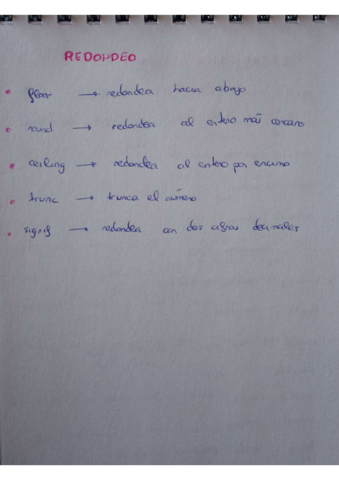 REDONDEO
floor → redondea hacia abajo
round → redondea al entero más cercano
ceiling → redondea al entero por encima
trunc → trunca el número
signif → redondea con dos cifras decimales